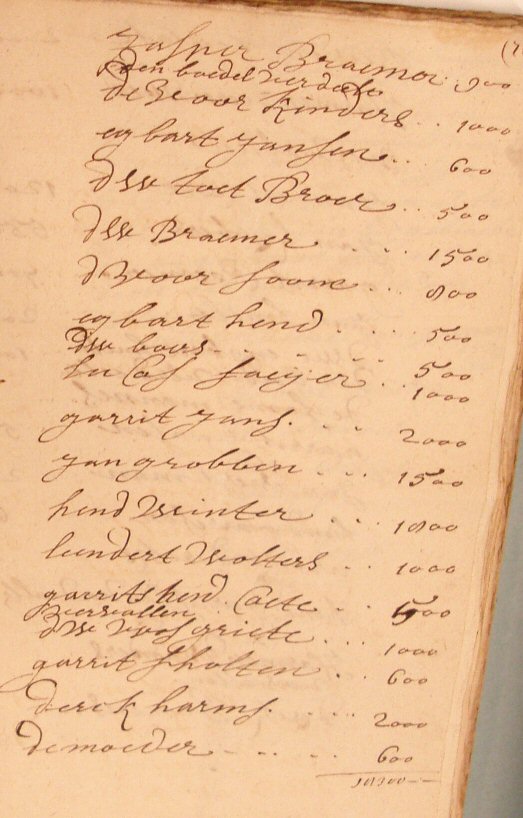 (7
Jasper Braemer .. 900
den boedel verdeelt
de voor kinders .. 1000
egbart Jansen .. 600
d w toet Broer .. 500
d w Braemer .... 1500
d voor soone ... 800
egbart hend .... 500
d w boers ..... 500
lucas saeyer .. 1000
garrit Jans. ... 2000
Jan grobben ... 1500
hend winter .. 1800
lendert wolters .. 1000
garrits hend Caete .. 500
d w griete .. 1000
garrit scholten .. 600
derck harms. .... 2000
de moeder ..... 600